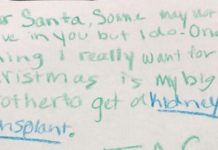 ar Santa, Some may not
ve in you but I do. One
ing I really want for
ristmas is my big
rother to get a kidney
nsplant.